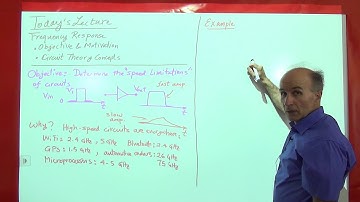 Today's Lecture
Frequency Response
• Objective & Motivation
• Circuit Theory Concepts
Objective: Determine the "speed limitations"
of circuits
Vin
0
t
Vout
fast amp.
t
slow
amp.
t
Why? High-speed circuits are everywhere,
WiFi: 2.4 GHz, 5 GHz Bluetooth: 2.4 GHz
GPS: 1.5 GHz, automotive radars: 26 GHz
Microprocessors: 4-5 GHz
Example